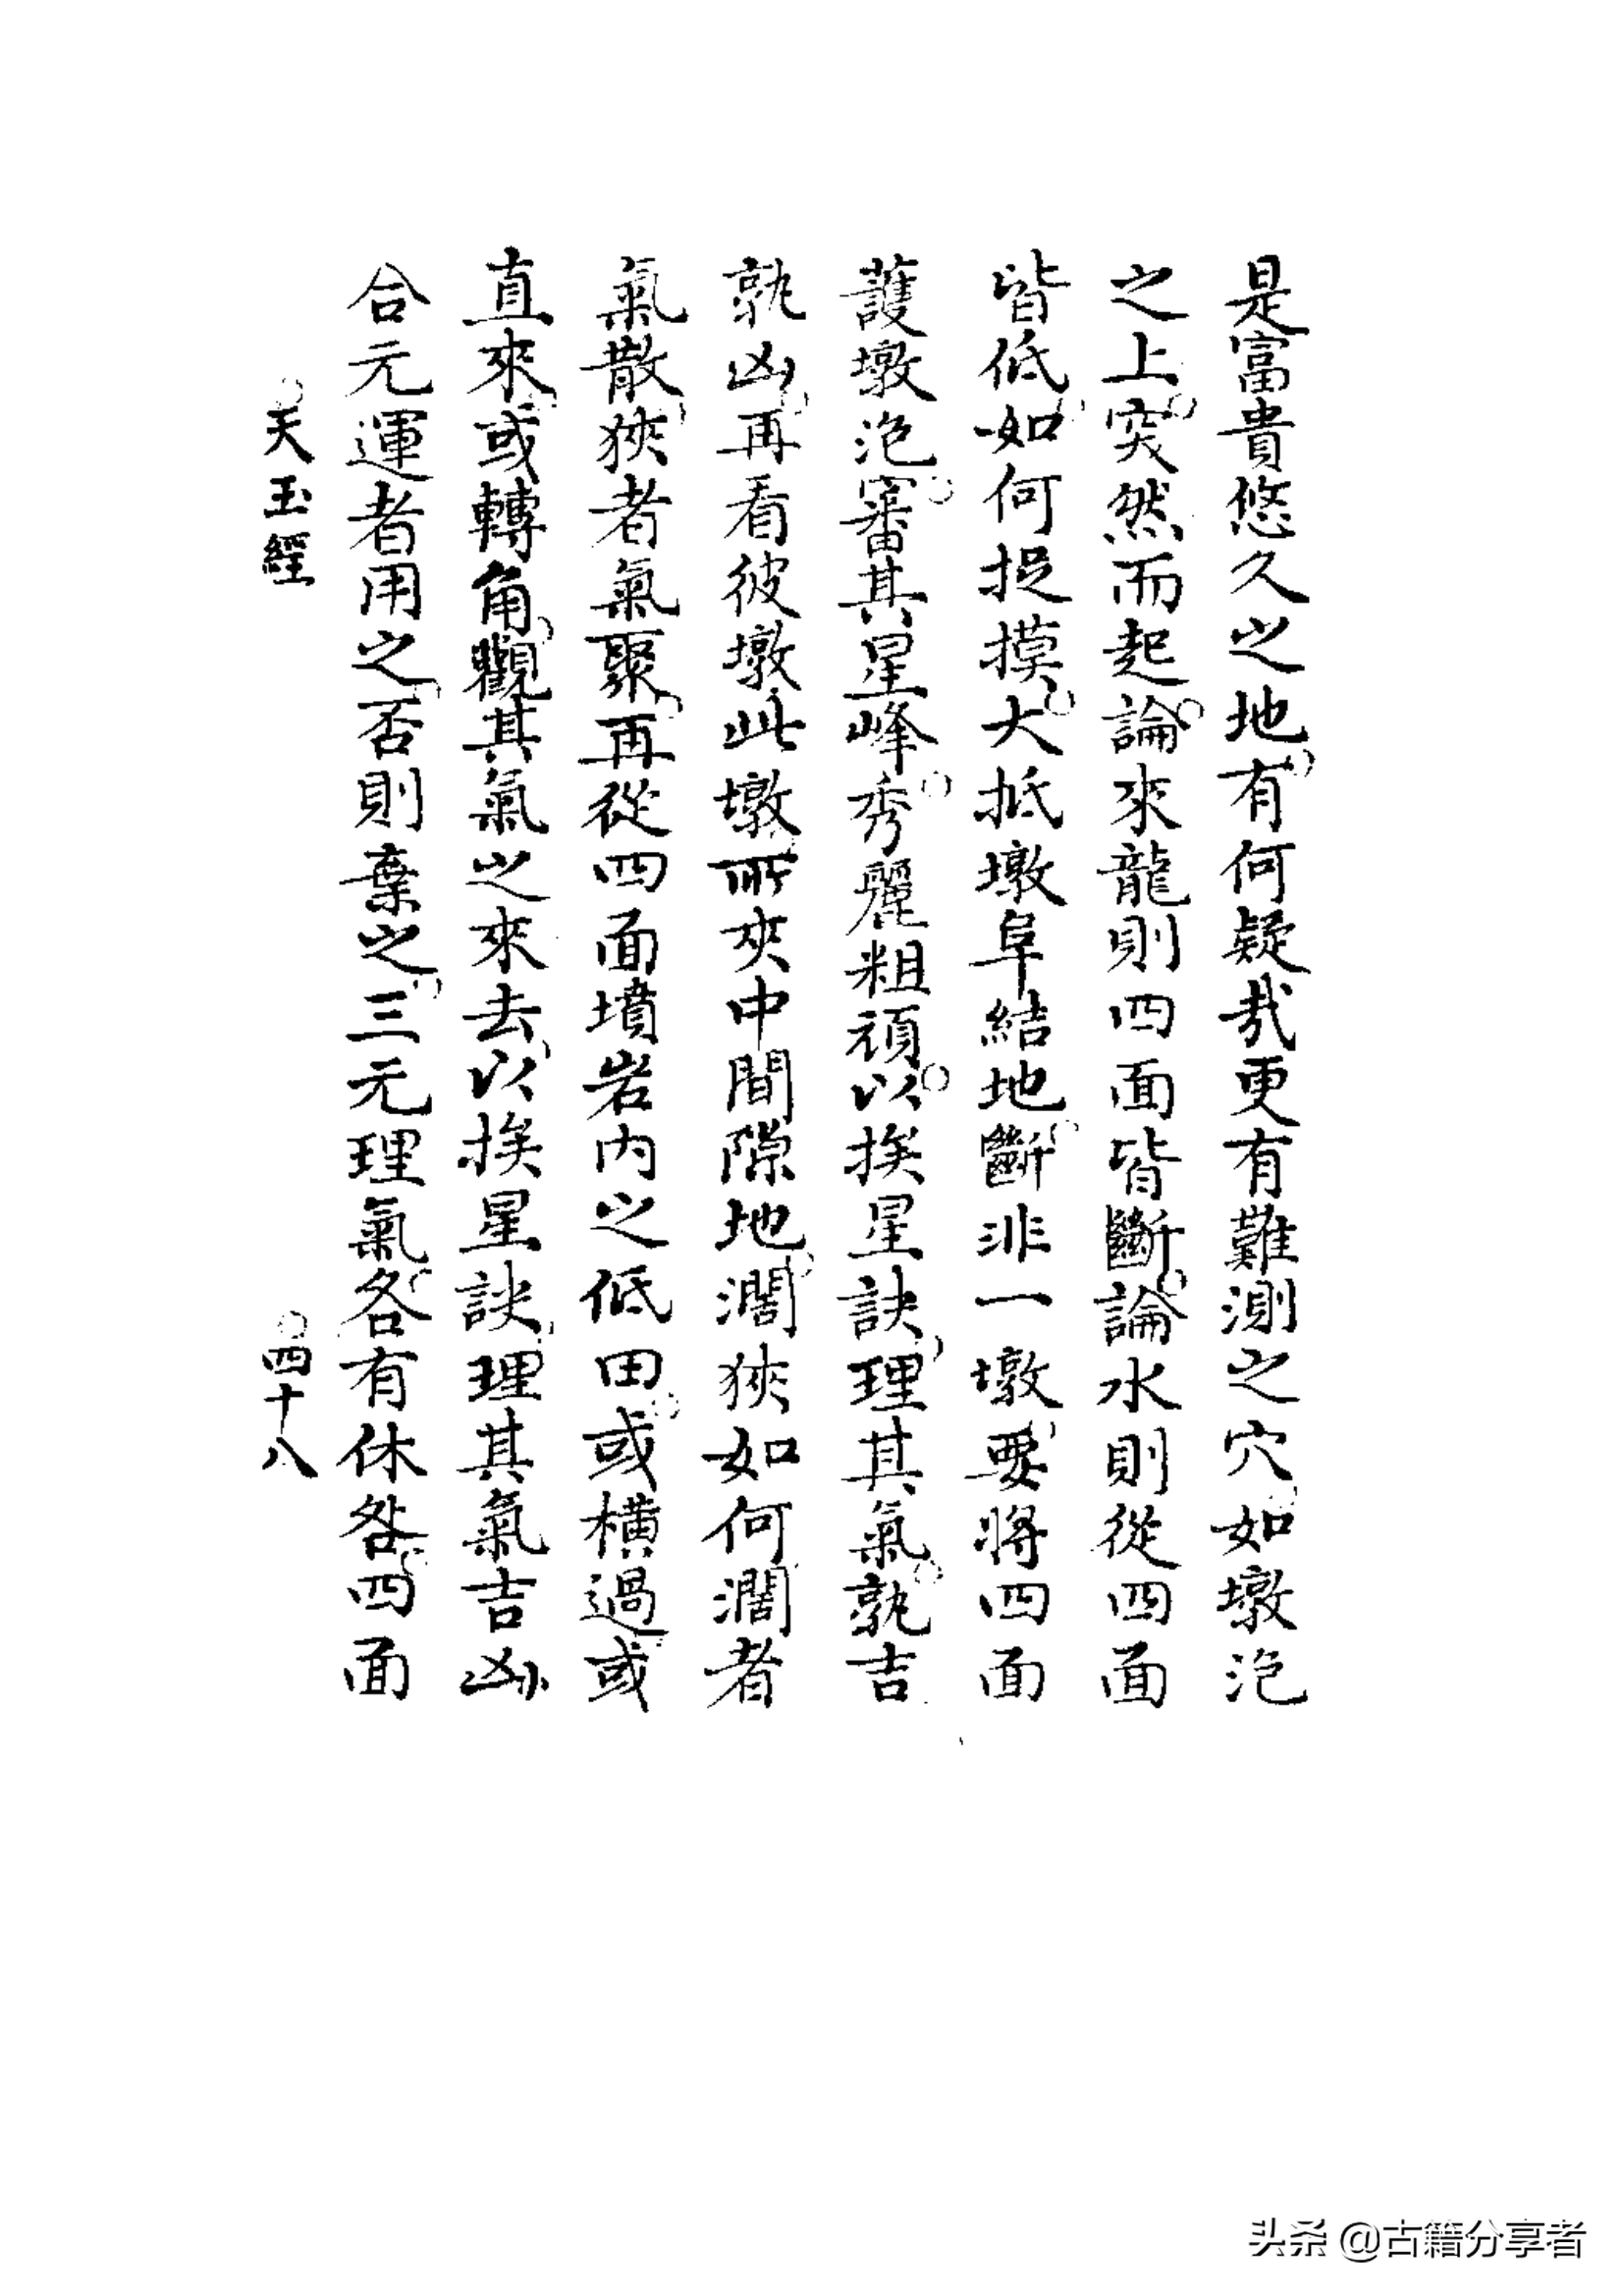 是富貴悠久之地有何疑哉更有難測之穴如墩泡
之上突然而起論來龍則四面皆斷論水則從四面
皆低如何捉摸大抵墩阜結地斷非一墩要將四面
護墩泡審其星峰秀麗粗頑以挨星訣理其氣孰吉
孰凶再看彼墩此墩所夾中間隙地濶狹如何濶者
氣散狹者氣聚再從四面墳岩內之低田或橫過或
直來或轉角觀其氣之來去以挨星訣理其氣吉凶
合元運者用之否則棄之三元理氣各有休咎四面
天玉經
四十八
头条 @古籍分享者